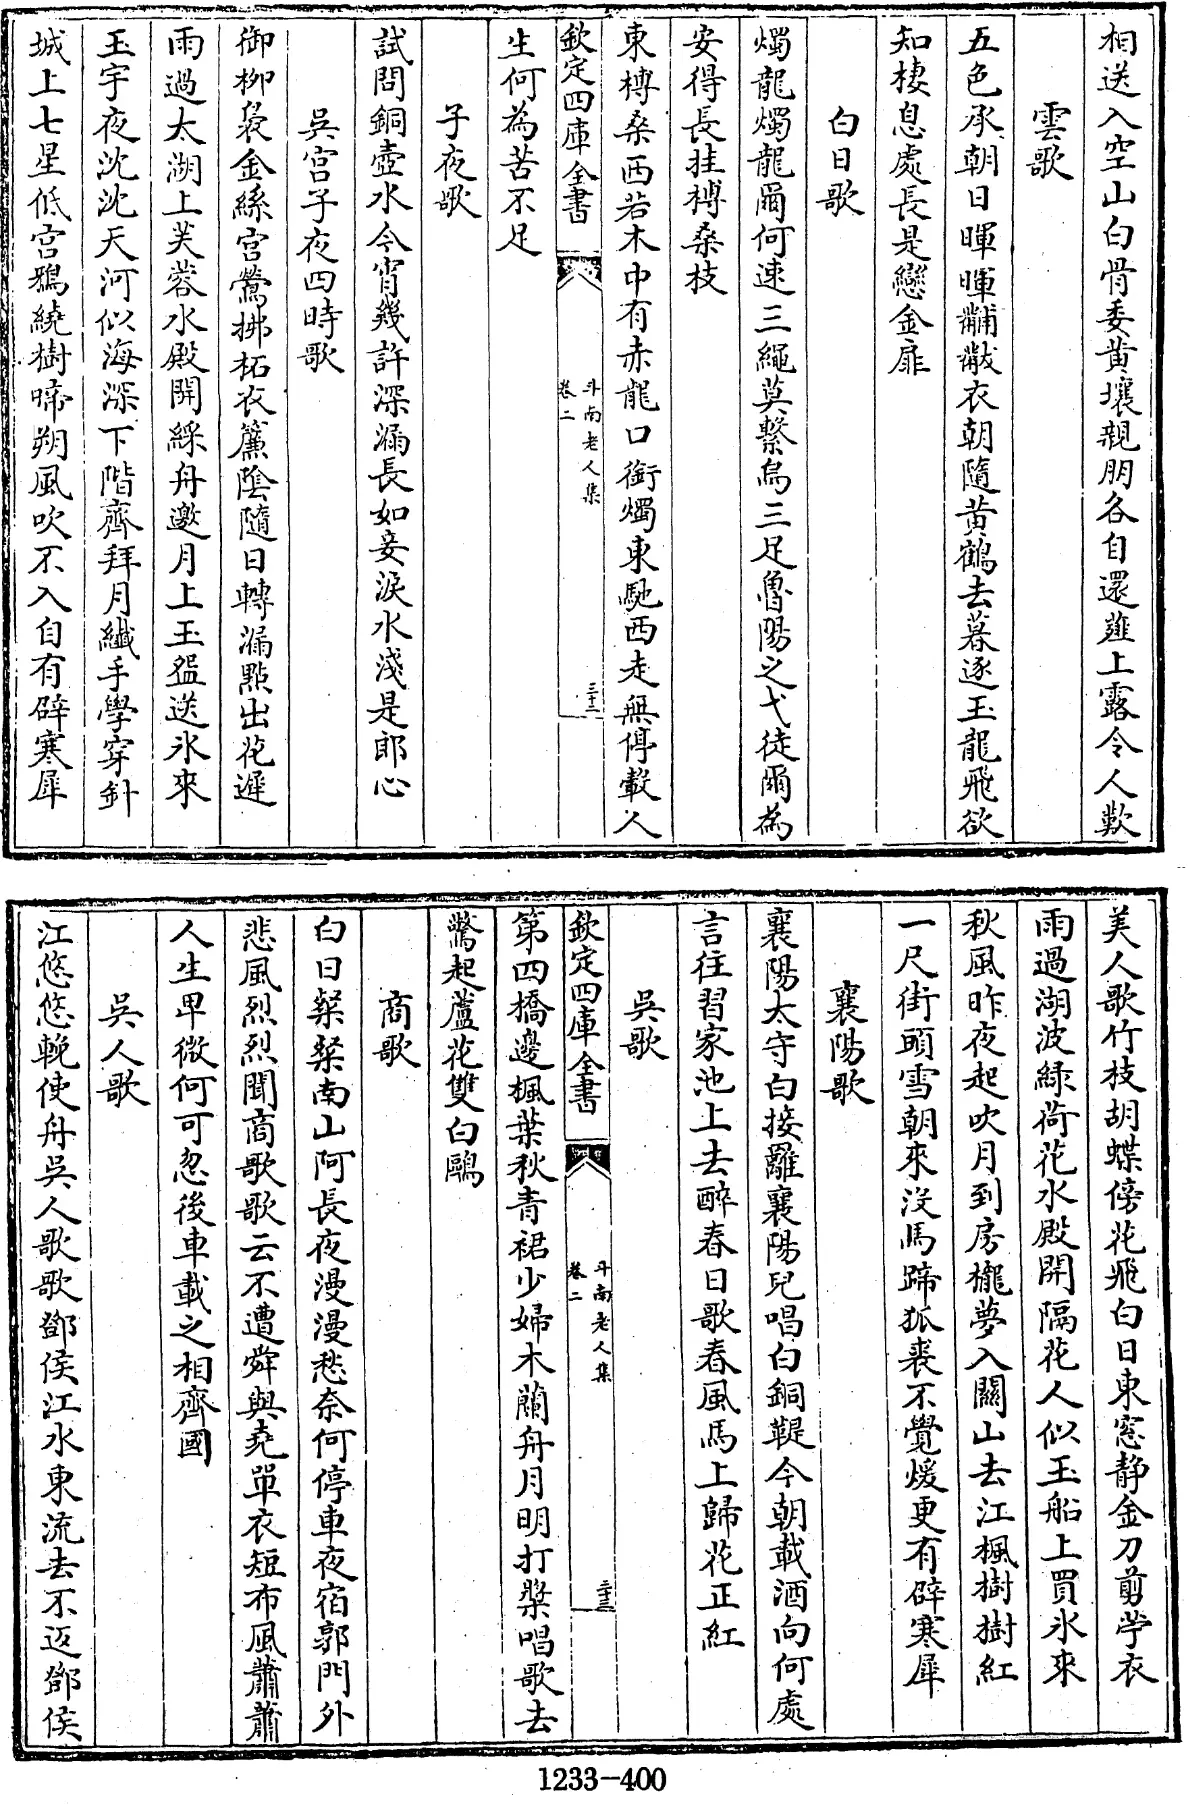 相送入空山白骨委黄壤親朋各自還薤上露令人歎
雲歌
五色承朝日暉暉黼黻衣朝隨黄鶴去暮逐玉龍飛欲
知棲息處長是戀金扉
白日歌
燭龍燭龍爾何速三繩莫繫烏三足魯陽之戈徒爾為
安得長挂榑桑枝
東榑桑西若木中有赤龍口銜燭東馳西走無停轂人
欽定四庫全書
斗南老人集
卷二
三十二
生何為苦不足
子夜歌
試問銅壺水今宵幾許深漏長如妾淚水淺是郎心
吳宫子夜四時歌
御柳裊金絲宫鶯拂柘衣簾陰隨日轉漏點出花遲
雨過太湖上芙蓉水殿開綵舟邀月上玉盌送氷來
玉宇夜沈沈天河似海深下階齊拜月纖手學穿針
城上七星低宫鴉繞樹啼朔風吹不入自有辟寒犀
美人歌竹枝胡蝶傍花飛白日東窓静金刀剪苧衣
雨過湖波緑荷花水殿開隔花人似玉船上買氷來
秋風昨夜起吹月到房櫳夢入關山去江楓樹樹紅
一尺街頭雪朝來沒馬蹄狐裘不覺煖更有辟寒犀
襄陽歌
襄陽太守白接䍦襄陽兒唱白銅鞮今朝載酒向何處
言往習家池上去醉春日歌春風馬上歸花正紅
吳歌
欽定四庫全書
斗南老人集
卷二
三十三
第四橋邊楓葉秋青裙少婦木蘭舟月明打槳唱歌去
驚起蘆花雙白鷗
商歌
白日粲粲南山阿長夜漫漫愁奈何停車夜宿郭門外
悲風烈烈聞商歌歌云不遭舜與堯單衣短布風蕭蕭
人生甲微何可忽後車載之相齊國
吳人歌
江悠悠輓使舟吳人歌歌鄧侯江水東流去不返鄧侯
1233-400